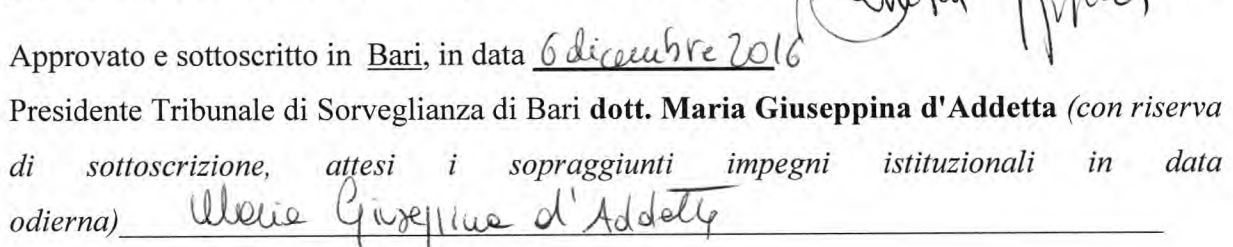 Approvato e sottoscritto in Bari, in data 6 dicembre 2016
Presidente Tribunale di Sorveglianza di Bari dott. Maria Giuseppina d'Addetta (con riserva
di sottoscrizione, attesi i sopraggiunti impegni istituzionali in data
odierna) Maria Giuseppina d'Addetta